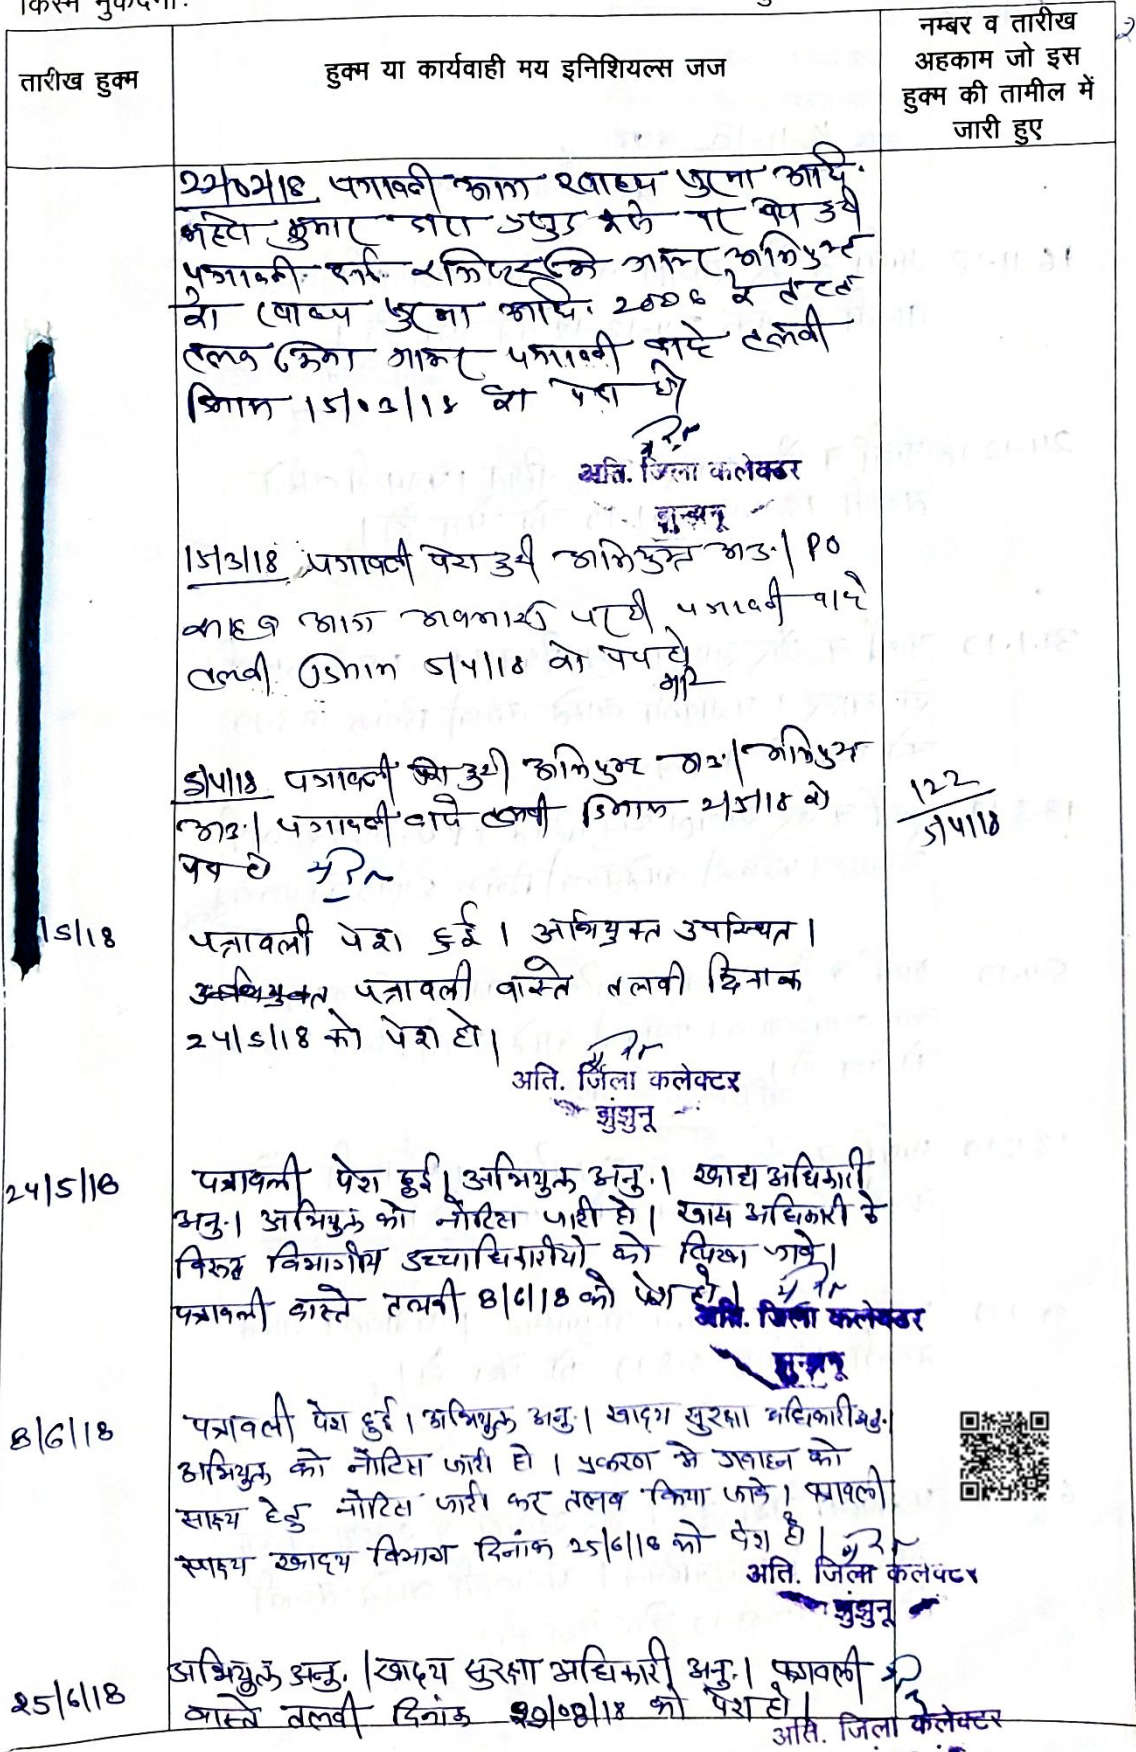 किस्म मुकदमा:
तारीख हुक्म
हुक्म या कार्यवाही मय इनिशियल्स जज
नम्बर व तारीख
अहकाम जो इस
हुक्म की तामील में
जारी हुए
2
22/02/18 पत्रावली आज खाद्य सुरक्षा अधि.
महेश कुमार द्वारा प्रस्तुत करने पर पेश हुयी
पत्रावली दर्ज रजिस्टर की जाकर अभियुक्त
को खाद्य सुरक्षा अधि. 2006 के तहत
तलब किया जाकर पत्रावली वास्ते तलबी
दिनांक 15/03/18 को पेश हो
अति. जिला कलेक्टर
झुन्झुनू
15/3/18 पत्रावली पेश हुयी अभियुक्त अनु. | PO
साहब आज अवकाश पर थी पत्रावली वास्ते
तलबी दिनांक 5/4/18 को पेश हो
5/4/18 पत्रावली पेश हुयी अभियुक्त अनु. | अभियुक्त
अनु. | पत्रावली वास्ते तलबी दिनांक 2/5/18 को
पेश हो
122
5/4/18
/5/18
पत्रावली पेश हुई । अभियुक्त उपस्थित ।
पत्रावली वास्ते तलबी दिनाक
24/5/18 को पेश हो |
अति. जिला कलेक्टर
झुंझुनू
24/5/18
पत्रावली पेश हुई | अभियुक्त अनु. | खाद्य अधिकारी
अनु. | अभियुक्त को नोटिस जारी हो | खाद्य अधिकारी के
विरूद्ध विभागीय उच्चाधिकारीयो को लिखा जावे |
पत्रावली वास्ते तलबी 8/6/18 को पेश हो |
अति. जिला कलेक्टर
झुन्झुनू
8/6/18
पत्रावली पेश हुई । अभियुक्त अनु. | खाद्य सुरक्षा अधिकारी अनु. |
अभियुक्त को नोटिस जारी हो । प्रकरण मे गवाहन को
साक्ष्य हेतु नोटिस जारी कर तलब किया जावे । पत्रावली
साक्ष्य खाद्य विभाग दिनांक 25/6/18 को पेश हो |
अति. जिला कलेक्टर
झुंझुनू
25/6/18
अभियुक्त अनु. | खाद्य सुरक्षा अधिकारी अनु. | पत्रावली
वास्ते तलबी दिनांक /08/18 को पेश हो |
अति. जिला कलेक्टर